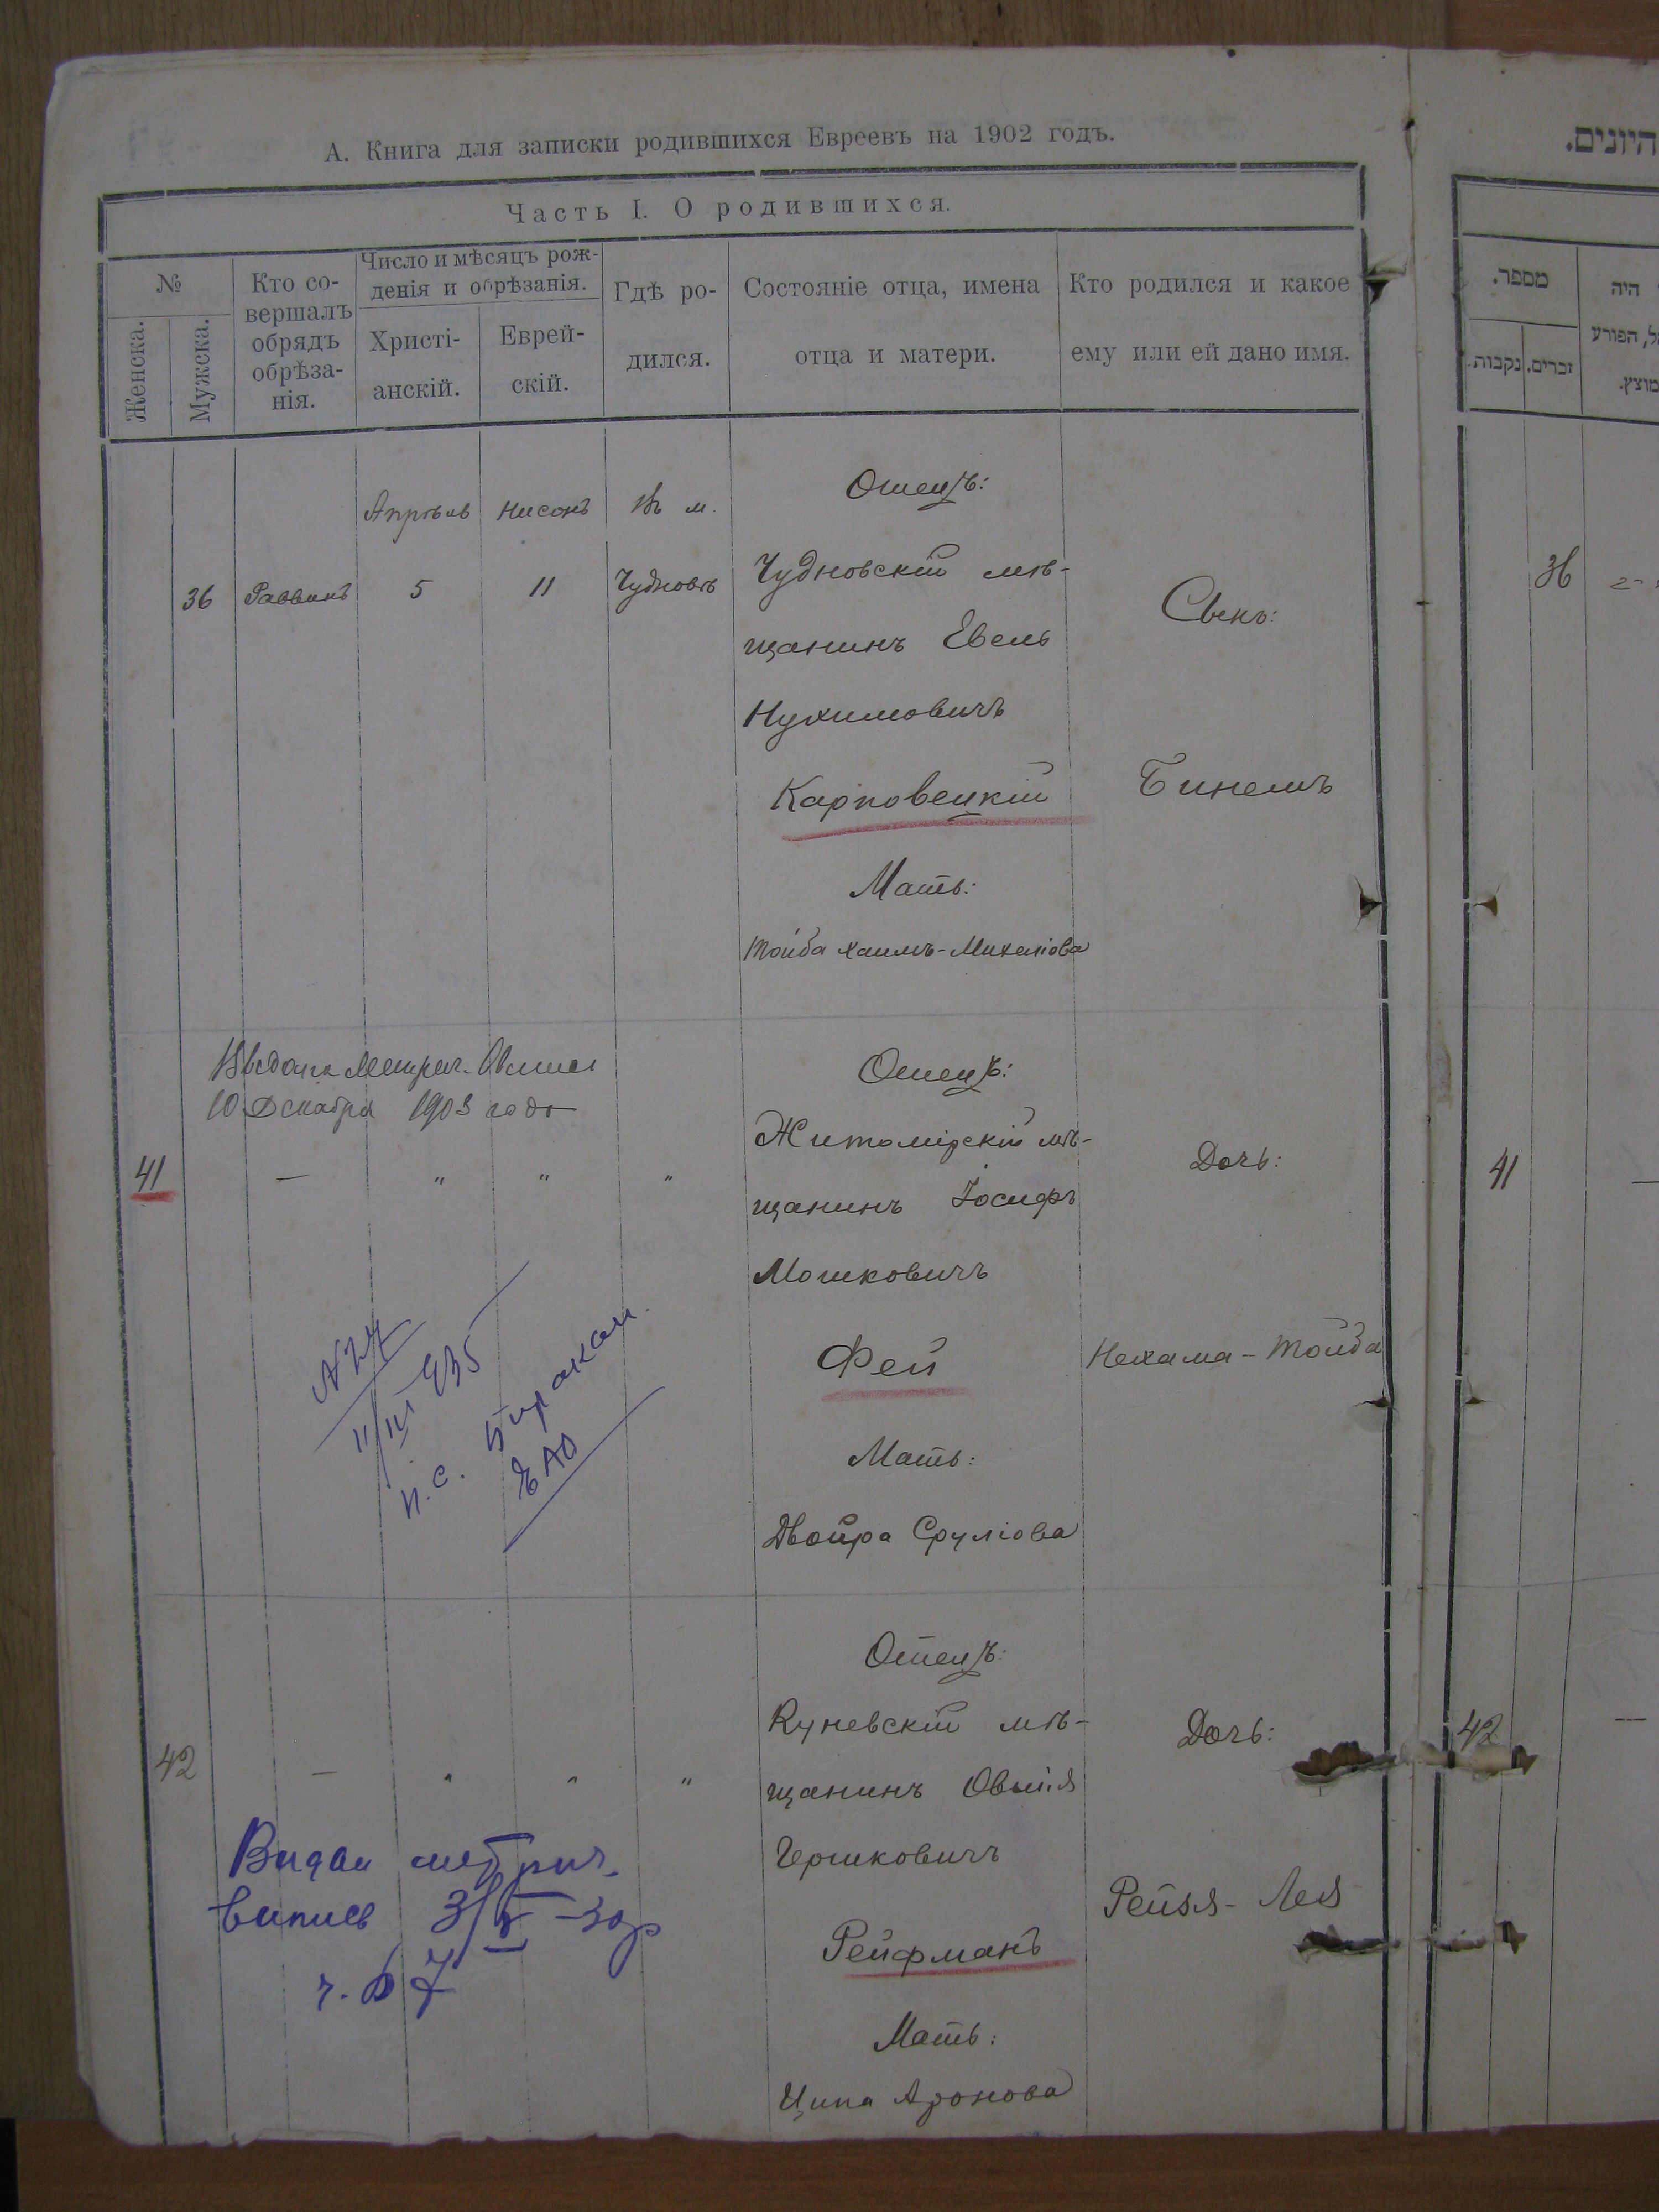 А. Книга для записки родившихся Евреевъ на 1902 годъ.
Часть I. О родившихся.
№
Женска.
Мужска.
Кто со-
вершалъ
обрядъ
обрѣза-
нія.
Число и мѣсяцъ рож-
денія и обрѣзанія.
Христі-
анскій.
Еврей-
скій.
Гдѣ ро-
дился.
Состояніе отца, имена
отца и матери.
Кто родился и какое
ему или ей дано имя.
36
Раввинъ
Апрѣль
5
Нисонъ
11
Въ м.
Чудновѣ
Отецъ:
Чудновскій мѣ-
щанинъ Евель
Нухимовичъ
Карповецкій
Мать:
Тойба Хаимъ-Михеліова
Сынъ:
Бинемъ
Выдана Метрич.
10 Декабря 1903 года
41
—
"
"
"
Отецъ:
Житомірскій мѣ-
щанинъ Іосифъ
Мошковичъ
Фей
Мать:
Двойра Сруліова
Дочь:
Нехама-Тойба
11/III 935
п.с. Биракан.
ЕАО
42
—
"
"
"
Отецъ:
Куневскій мѣ-
щанинъ Овшія
Гершковичъ
Рейфманъ
Мать:
Ципа Аронова
Дочь:
Рейзя-Лея
Видан метрич.
випись 3/V-30р
ч. 67
היונים.
מספר.
זכרים.
נקבות.
היה
הפורע
מוצץ.
36
41
—
42
—